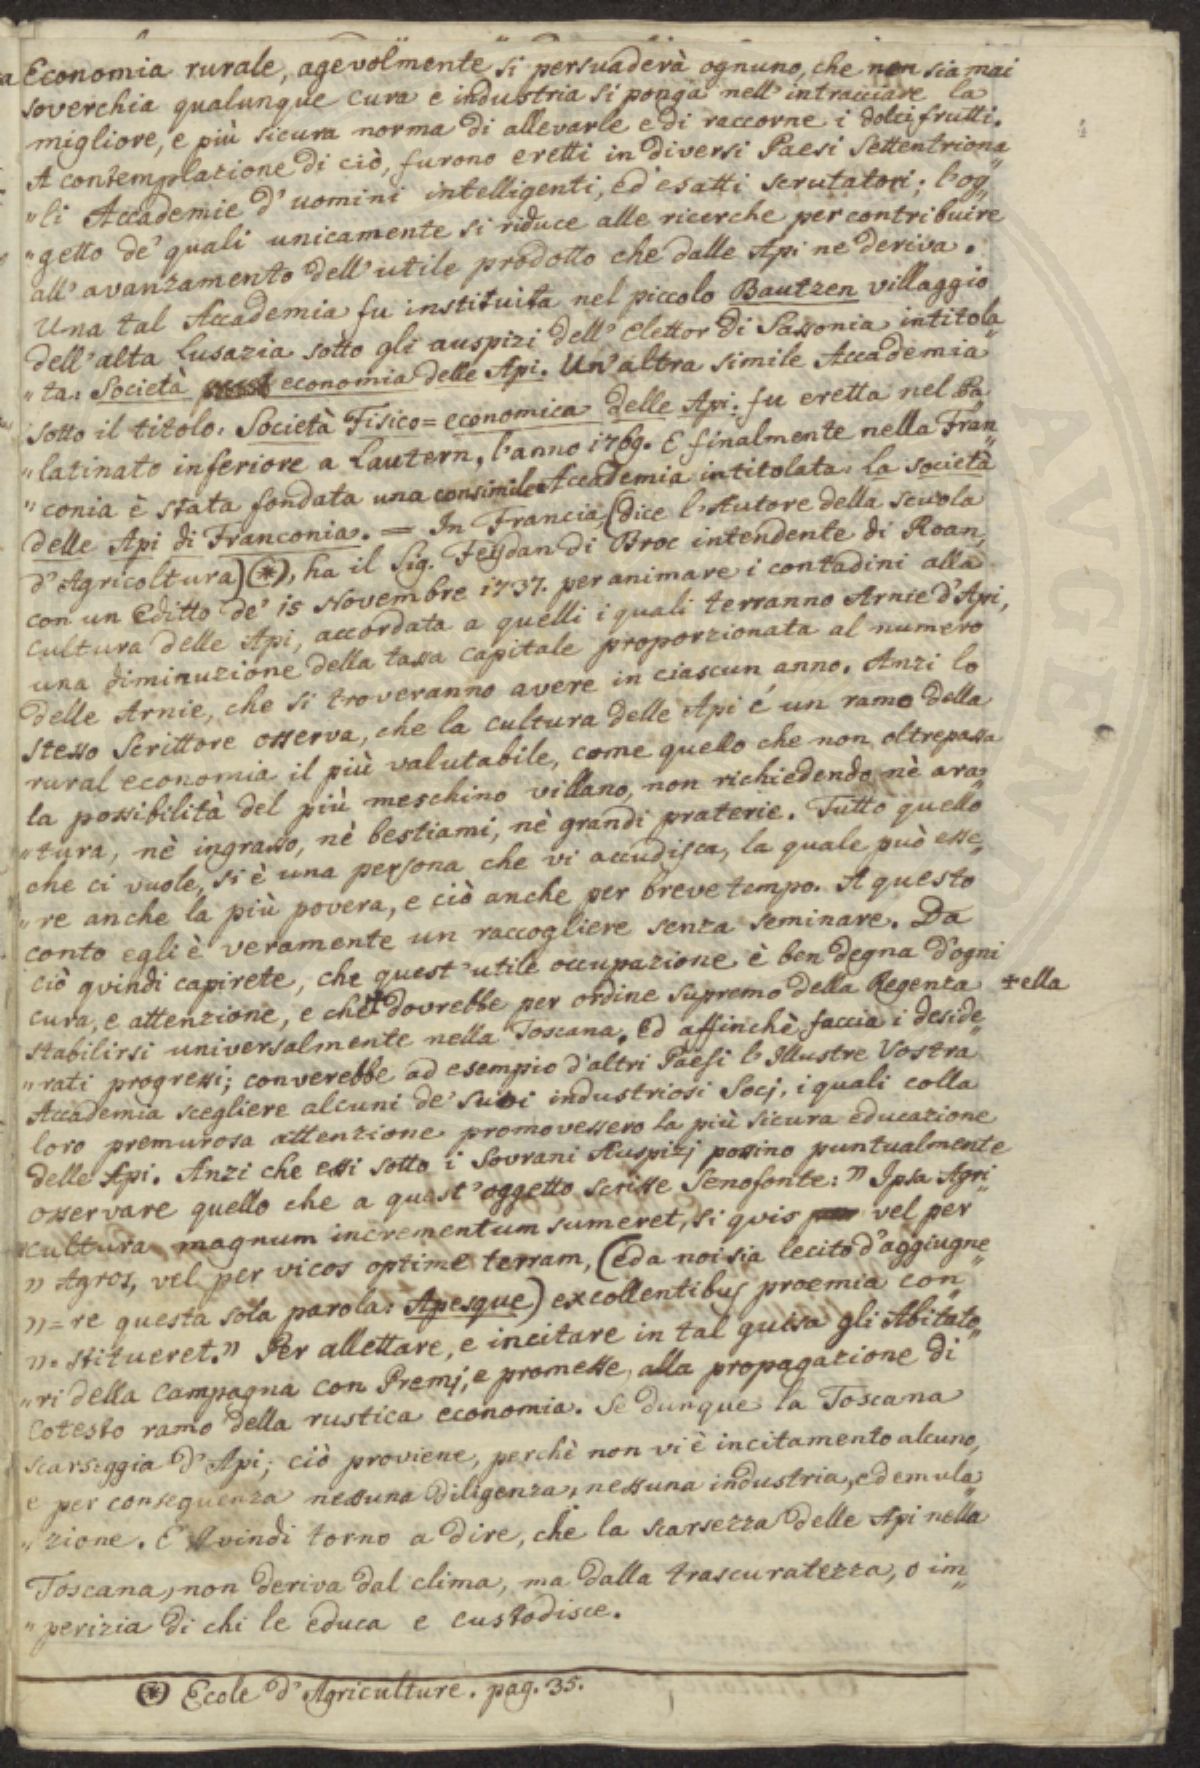 Economia rurale, agevolmente si persuaderà ognuno, che non sia mai
soverchia qualunque cura e industria si ponga nell'intracciare la
migliore, e più sicura norma di allevarle e di raccorne i dolci frutti.
A contemplazione di ciò, furono eretti in diversi Paesi Settentriona„
„li Accademie d'uomini intelligenti, ed esatti scrutatori; l'og„
„getto de' quali unicamente si riduce alle ricerche per contribuire
all'avanzamento dell'utile prodotto che dalle Api ne deriva.
Una tal Accademia fu instituita nel piccolo Bautzen villaggio
dell'alta Lusazia sotto gli auspizi dell'Elettor di Sassonia intitola„
„ta: Società economia delle Api. Un'altra simile Accademia
sotto il titolo: Società Fisico=economica delle Api: fu eretta nel Pa„
„latinato inferiore a Lautern, l'anno 1769. E finalmente nella Fran„
„conia è stata fondata una consimile Accademia intitolata: La società
delle Api di Franconia. = In Francia, (dice l'Autore della scuola
d'Agricoltura) (*), ha il Sig. Feydan di Broc intendente di Roan,
con un Editto de' 15 Novembre 1737. per animare i contadini alla
cultura delle Api, accordata a quelli i quali terranno Arnie d'Api,
una diminuzione della tassa capitale proporzionata al numero
delle Arnie, che si troveranno avere in ciascun anno. Anzi lo
stesso Scrittore osserva, che la cultura delle Api é un ramo della
rural economia il più valutabile, come quello che non oltrepassa
la possibilità del più meschino villano, non richiedendo nè ara„
„tura, nè ingrasso, nè bestiami, nè grandi praterie. Tutto quello
che ci vuole, si è una persona che vi accudisca, la quale può esse„
„re anche la più povera, e ciò anche per breve tempo. A questo
conto egli è veramente un raccogliere senza seminare. Da
ciò quindi capirete, che quest'utile occupazione è ben degna d'ogni
cura, e attenzione, e ch+ dovrebbe per ordine supremo della Regenza +ella
stabilirsi universalmente nella Toscana. Ed affinchè faccia i deside„
„rati progressi; converebbe ad esempio d'altri Paesi l'Illustre Vostra
Accademia scegliere alcuni de' suoi industriosi Socj, i quali colla
loro premurosa attenzione promovessero la più sicura educazione
delle Api. Anzi che essi sotto i Sovrani Auspizj possino puntualmente
osservare quello che a quest'oggetto scrisse Senofonte: " Ipsa Agri„
cultura magnum incrementum sumeret, si quis vel per
" Agros, vel per vicos optime terram, (e da noi sia lecito d'aggiugne„
"=re questa sola parola: Apesque) excollentibus proemia con„
"=stitueret." Per allettare, e incitare in tal guisa gli Abitato„
„ri della Campagna con Premj, e promesse, alla propagazione di
Cotesto ramo della rustica economia. Se dunque la Toscana
scarseggia d'Api; ciò proviene, perchè non vi è incitamento alcuno,
e per conseguenza nessuna diligenza, nessuna industria, ed emula„
„zione. E Quindi torno a dire, che la scarsezza delle Api nella
Toscana, non deriva dal clima, ma dalla trascuratezza, o im„
„perizia di chi le educa e custodisce.
(*) Ecole d'Agriculture. pag. 35.